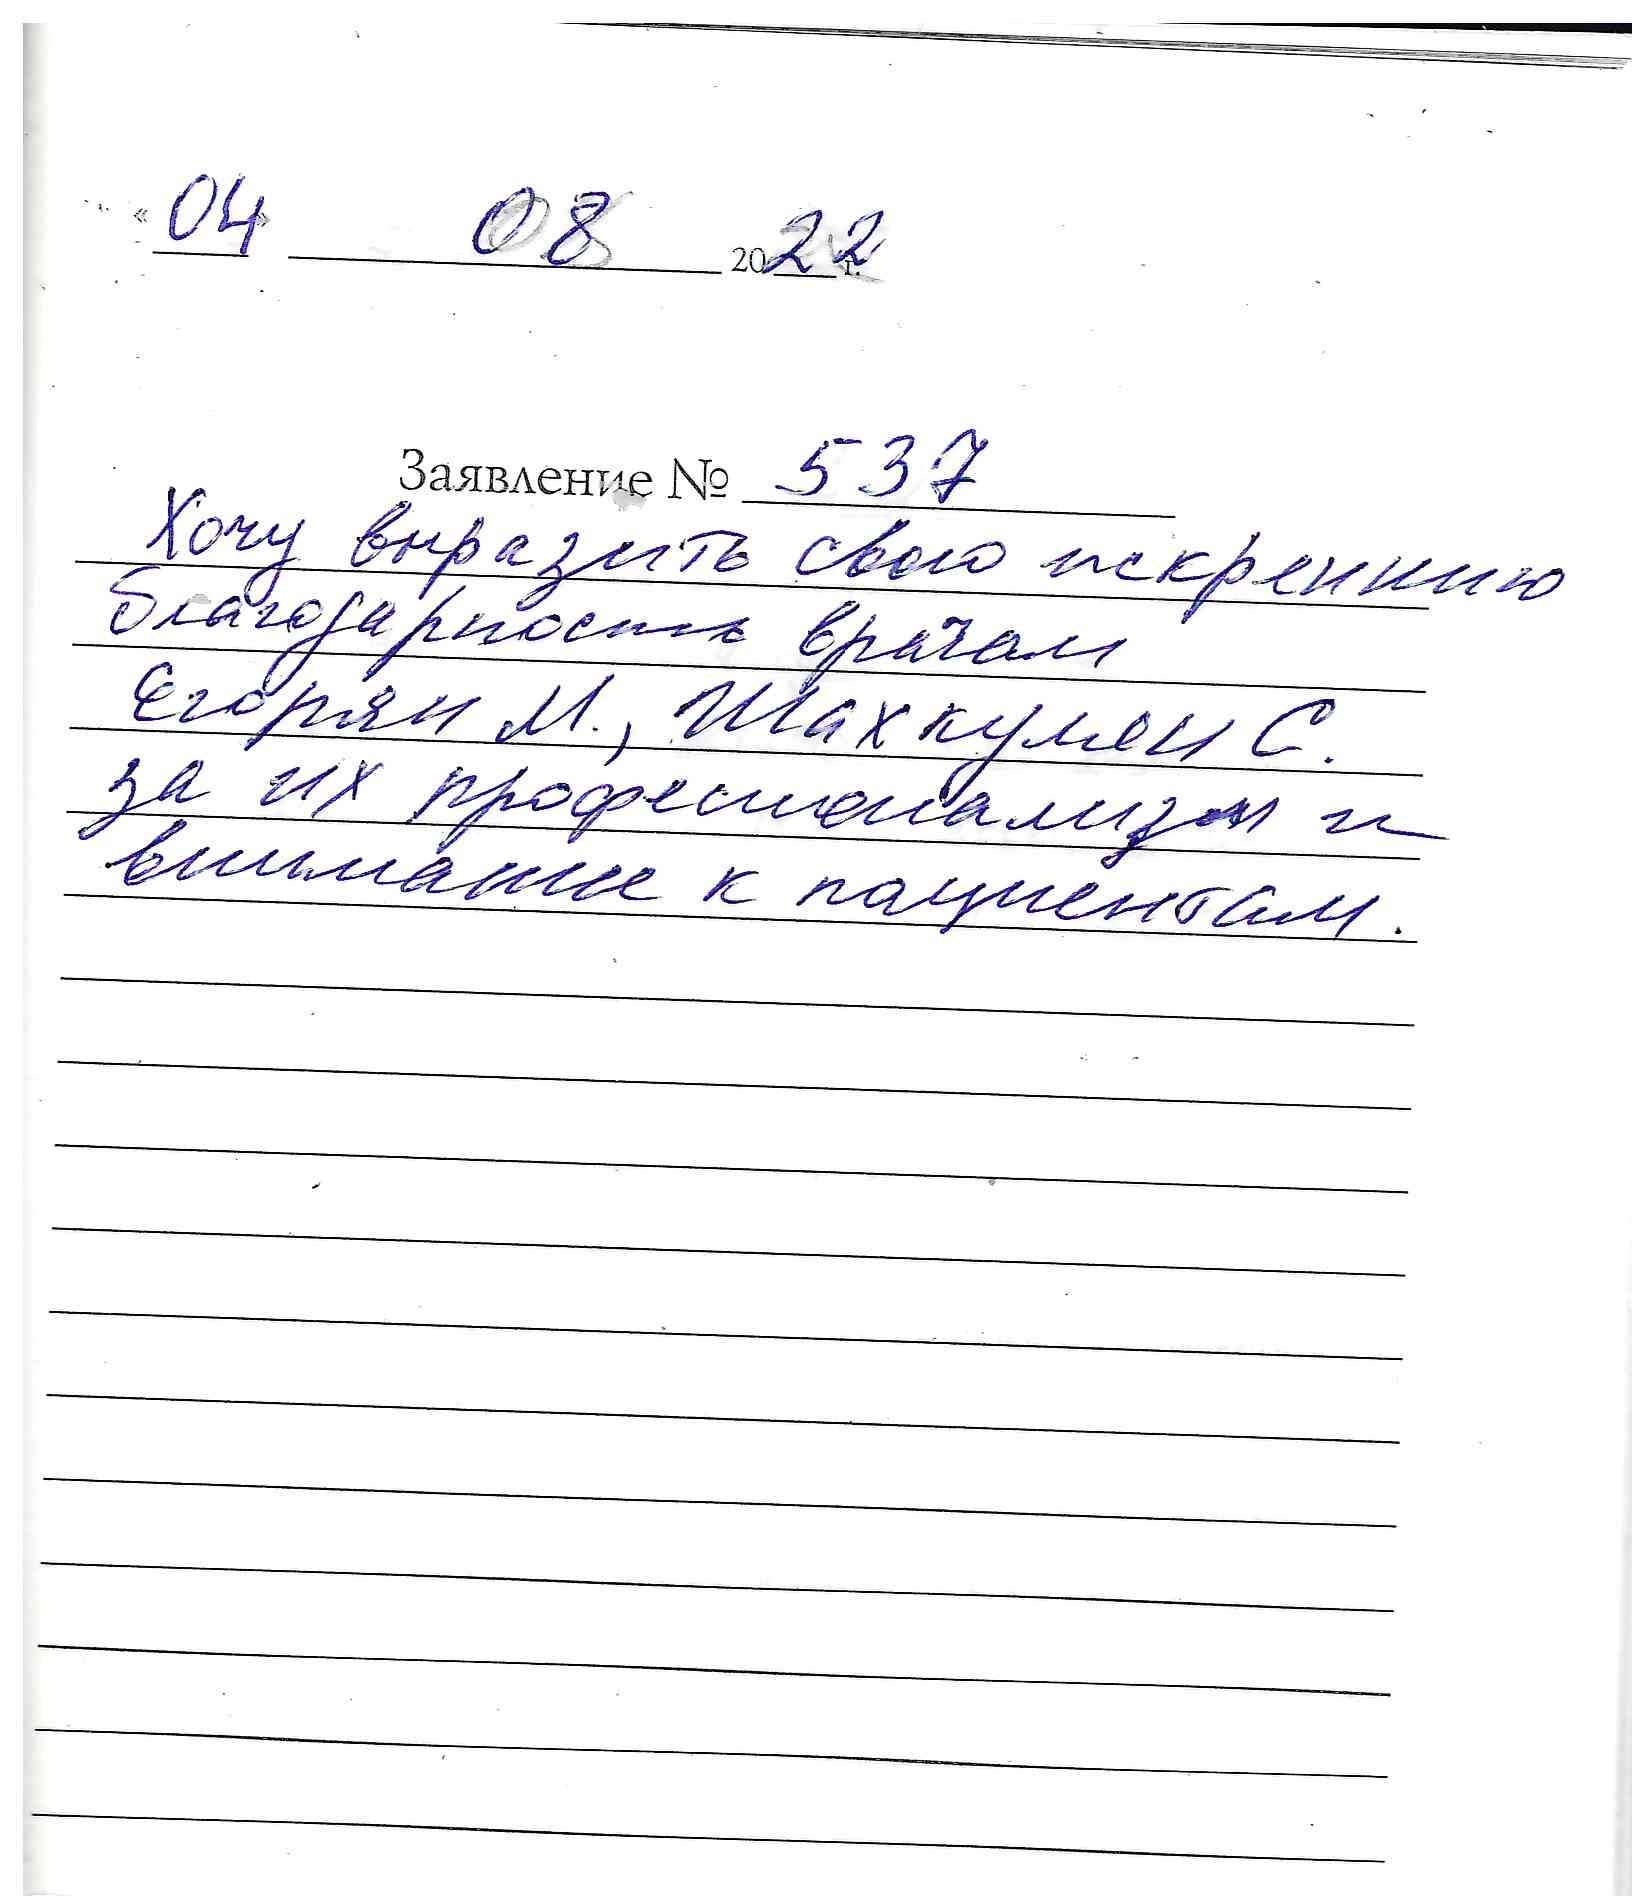 «04» 08 2022 г.
Заявление № 537
Хочу выразить свою искреннию
благодарность врачам
Егорян М., Шахкулян С.
за их професионализм и
внимание к пациентам.